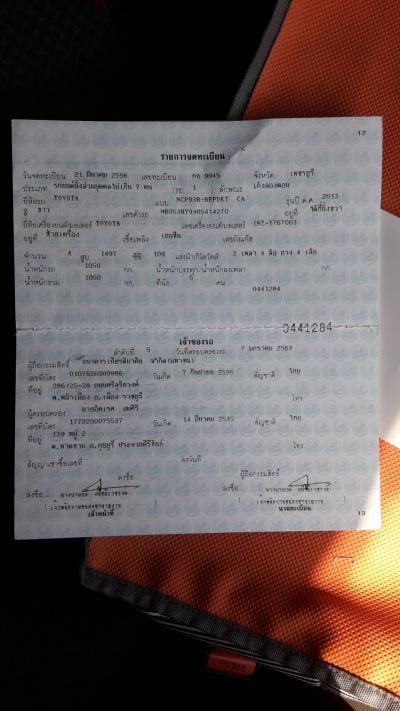 12
รายการจดทะเบียน
วันจดทะเบียน 21 มีนาคม 2556 เลขทะเบียน กอ 9945 จังหวัด เพชรบุรี
ประเภท รถยนต์นั่งส่วนบุคคลไม่เกิน 7 คน (รย. 1 ) ลักษณะ เก๋งสองตอน
ยี่ห้อรถ TOYOTA แบบ NCP93R-BEPDKT CA รุ่นปี ค.ศ. 2013
สี ขาว เลขตัวรถ MR053BY9305414270 อยู่ที่
ยี่ห้อเครื่องยนต์/มอเตอร์ TOYOTA เลขเครื่องยนต์/มอเตอร์ 1NZ-Y767003
อยู่ที่ ข้างเครื่อง เชื้อเพลิง เบนซิน เลขถังแก๊ส
จำนวน 4 สูบ 1497 ซีซี 109 แรงม้า/กิโลวัตต์ 2 เพลา 4 ล้อ ยาง 4 เส้น
น้ำหนักรถ 1050 กก. น้ำหนักบรรทุก/น้ำหนักลงเพลา กก.
น้ำหนักรวม 1050 กก. ที่นั่ง 5 คน
0441284
0441284
เจ้าของรถ
ลำดับที่ 5 วันที่ครอบครองรถ 7 มกราคม 2563
ผู้ถือกรรมสิทธิ์ ธนาคารเกียรตินาคิน จำกัด(มหาชน)
เลขที่บัตร 0107536000986 วันเกิด 7 กันยายน 2536 สัญชาติ ไทย
ที่อยู่ 286/25-28 ถนนศรีสุริยวงศ์
ต.หน้าเมือง อ.เมือง ราชบุรี โทร.
ผู้ครอบครอง
เลขที่บัตร 1770200075537 วันเกิด 14 มีนาคม 2535 สัญชาติ ไทย
ที่อยู่ 139 หมู่ 2
ต.หาดขาม อ.กุยบุรี ประจวบคีรีขันธ์ โทร.
สัญญาเช่าซื้อเลขที่ ลงวันที่
ลงชื่อ ผู้ถือกรรมสิทธิ์
ลงชื่อ ลงชื่อ
เจ้าหน้าที่ นายทะเบียน
13